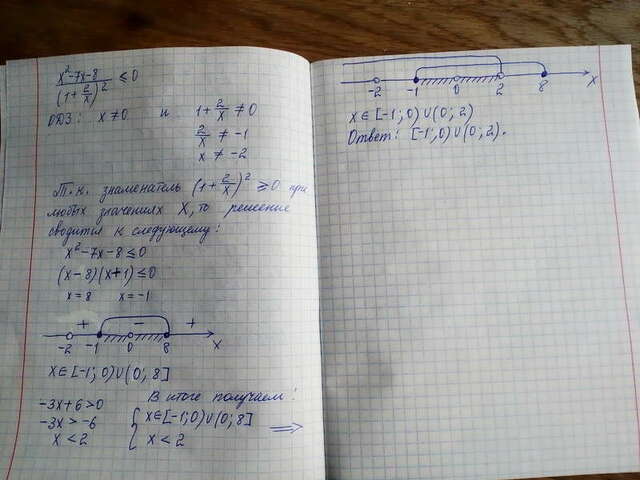 (x²-7x-8)/(1+2/x)² ≤ 0
ОДЗ: x ≠ 0 и 1+2/x ≠ 0
2/x ≠ -1
x ≠ -2
Т.к. знаменатель (1+2/x)² ≥ 0 при
любых значениях X, то решение
сводится к следующему:
x²-7x-8 ≤ 0
(x-8)(x+1) ≤ 0
x=8 x=-1
+ - +
-2 -1 0 8 x
x∈[-1; 0)∪(0; 8]
-3x+6>0
-3x>-6
x<2
В итоге получаем:
{ x∈[-1;0)∪(0;8]
x<2 ⟹
-2 -1 0 2 8 x
x∈[-1; 0)∪(0; 2)
Ответ: [-1;0)∪(0; 2).